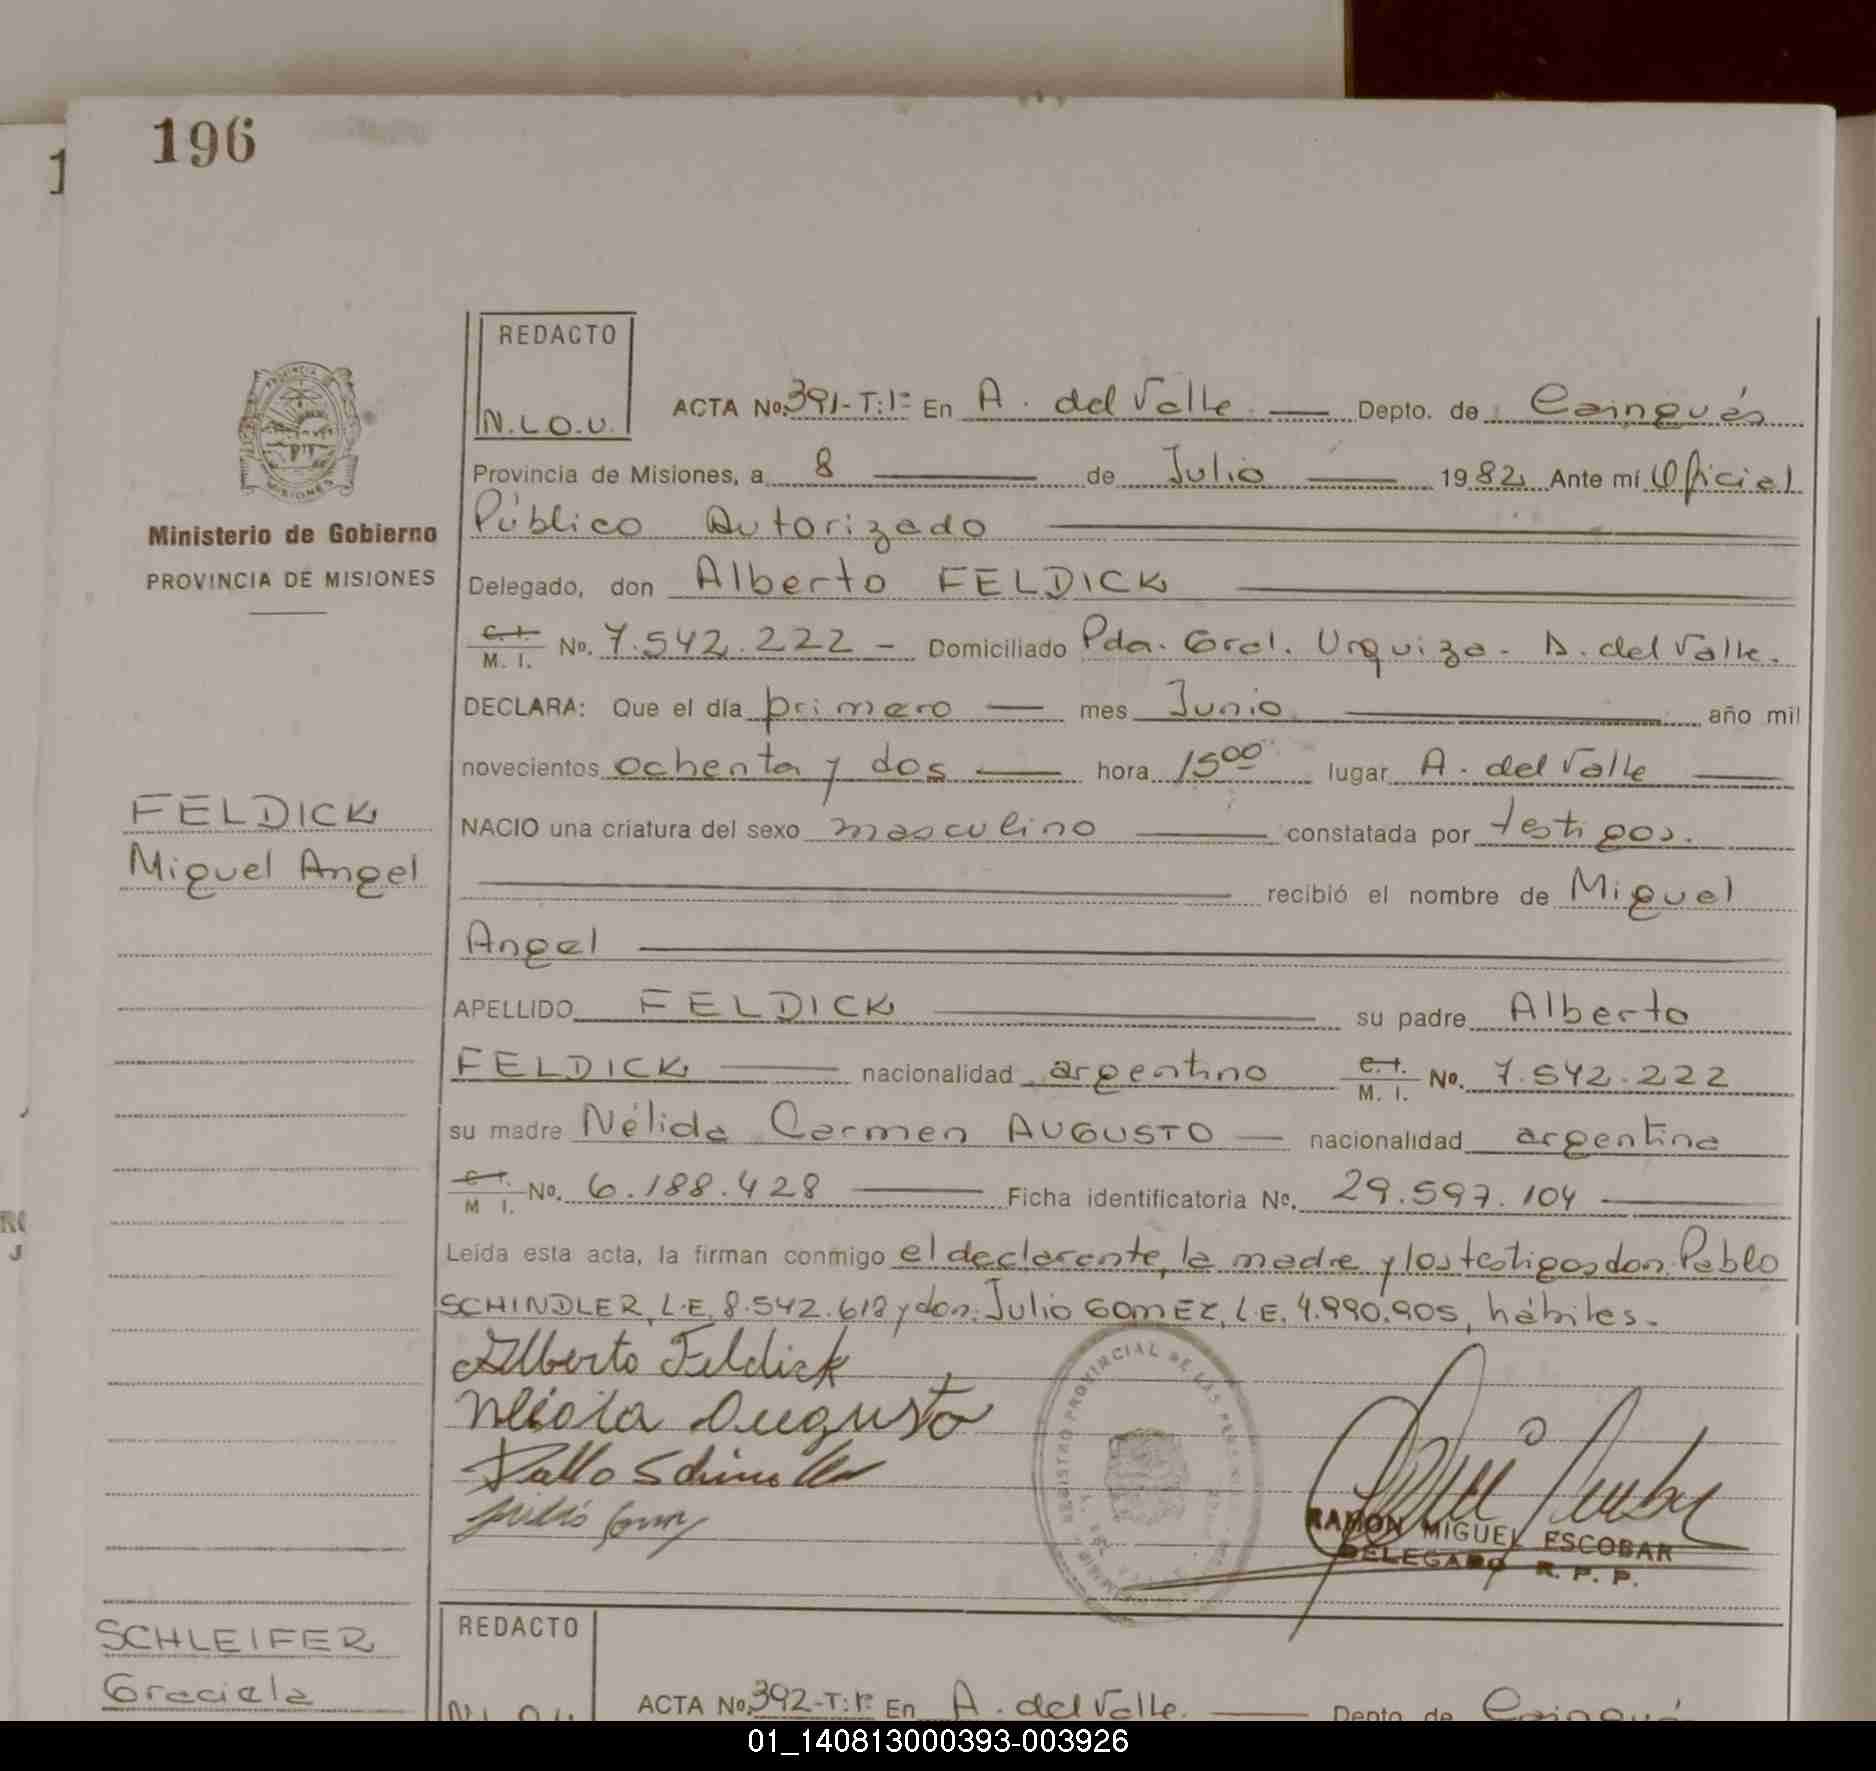 196
1
REDACTO
N.L.O.U.
ACTA No. 391-T:1º En A. del Valle Depto. de Cainguás
Provincia de Misiones, a 8 de Julio 1982 Ante mí Oficial
Público Autorizado
Delegado, don Alberto FELDICK
C. I. M. I. No. 7.542.222 - Domiciliado Pda. Gral. Urquiza - A. del Valle.
DECLARA: Que el día primero mes Junio año mil
novecientos ochenta y dos hora 15 00 lugar A. del Valle
NACIO una criatura del sexo masculino constatada por testigos.
recibió el nombre de Miguel
Angel
APELLIDO FELDICK su padre Alberto
FELDICK nacionalidad argentino C. I. M. I. No. 7.542.222
su madre Nélida Carmen AUGUSTO nacionalidad argentina
C. I. M I. No. 6.188.428 Ficha identificatoria No. 29.597.104
Leída esta acta, la firman conmigo el declarante, la madre y los testigos don Pablo
SCHINDLER, L.E. 8.542.618 y don: Julio GOMEZ, L.E. 4.990.905, hábiles.
Alberto Feldick
Augusto
REGISTRO PROVINCIAL DE LAS PERSONAS
RAMON MIGUEL ESCOBAR
DELEGADO R. P. P.
PROVINCIA
MISIONES
Ministerio de Gobierno
PROVINCIA DE MISIONES
FELDICK
Miguel Angel
SCHLEIFER
Graciela
REDACTO
ACTA No. 392-T:1º En A. del Valle. Depto de
01_140813000393-003926